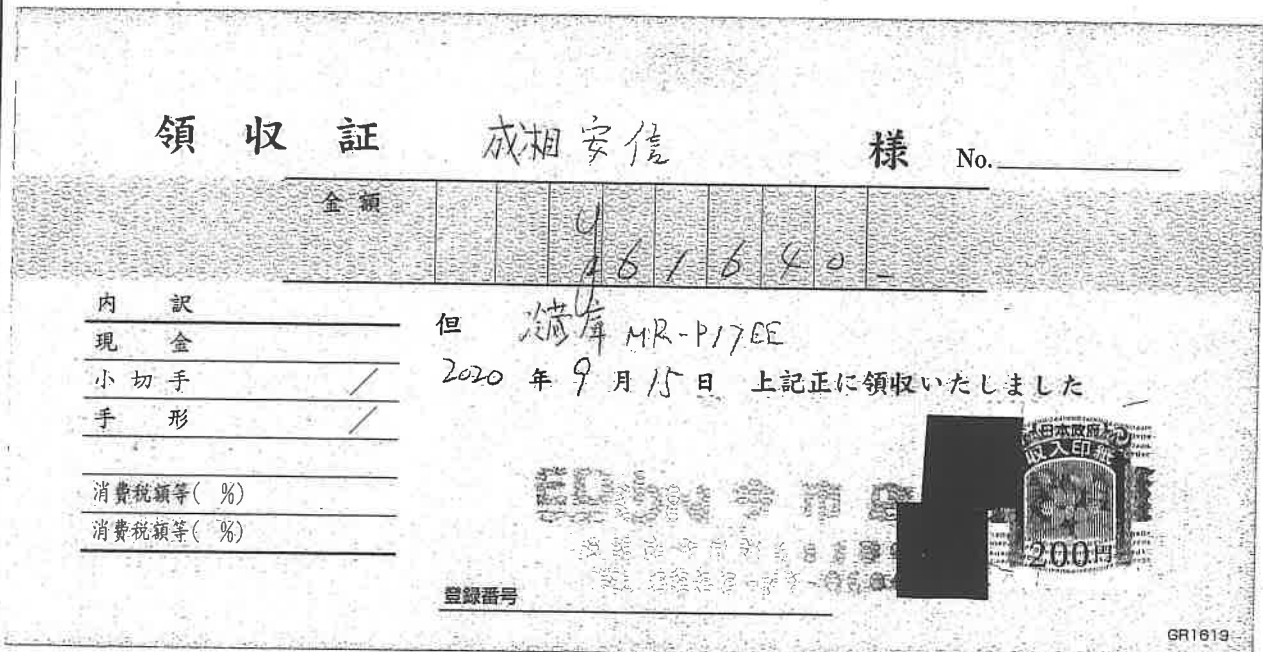 領収証 成相安信 様 No.
金額 ¥61640-
内訳
現金
小切手
手形
消費税額等( %)
消費税額等( %)
但 冷蔵庫 MR-P17EE
2020年9月15日 上記正に領収いたしました
日本政府
収入印紙
200円
登録番号
GR1619